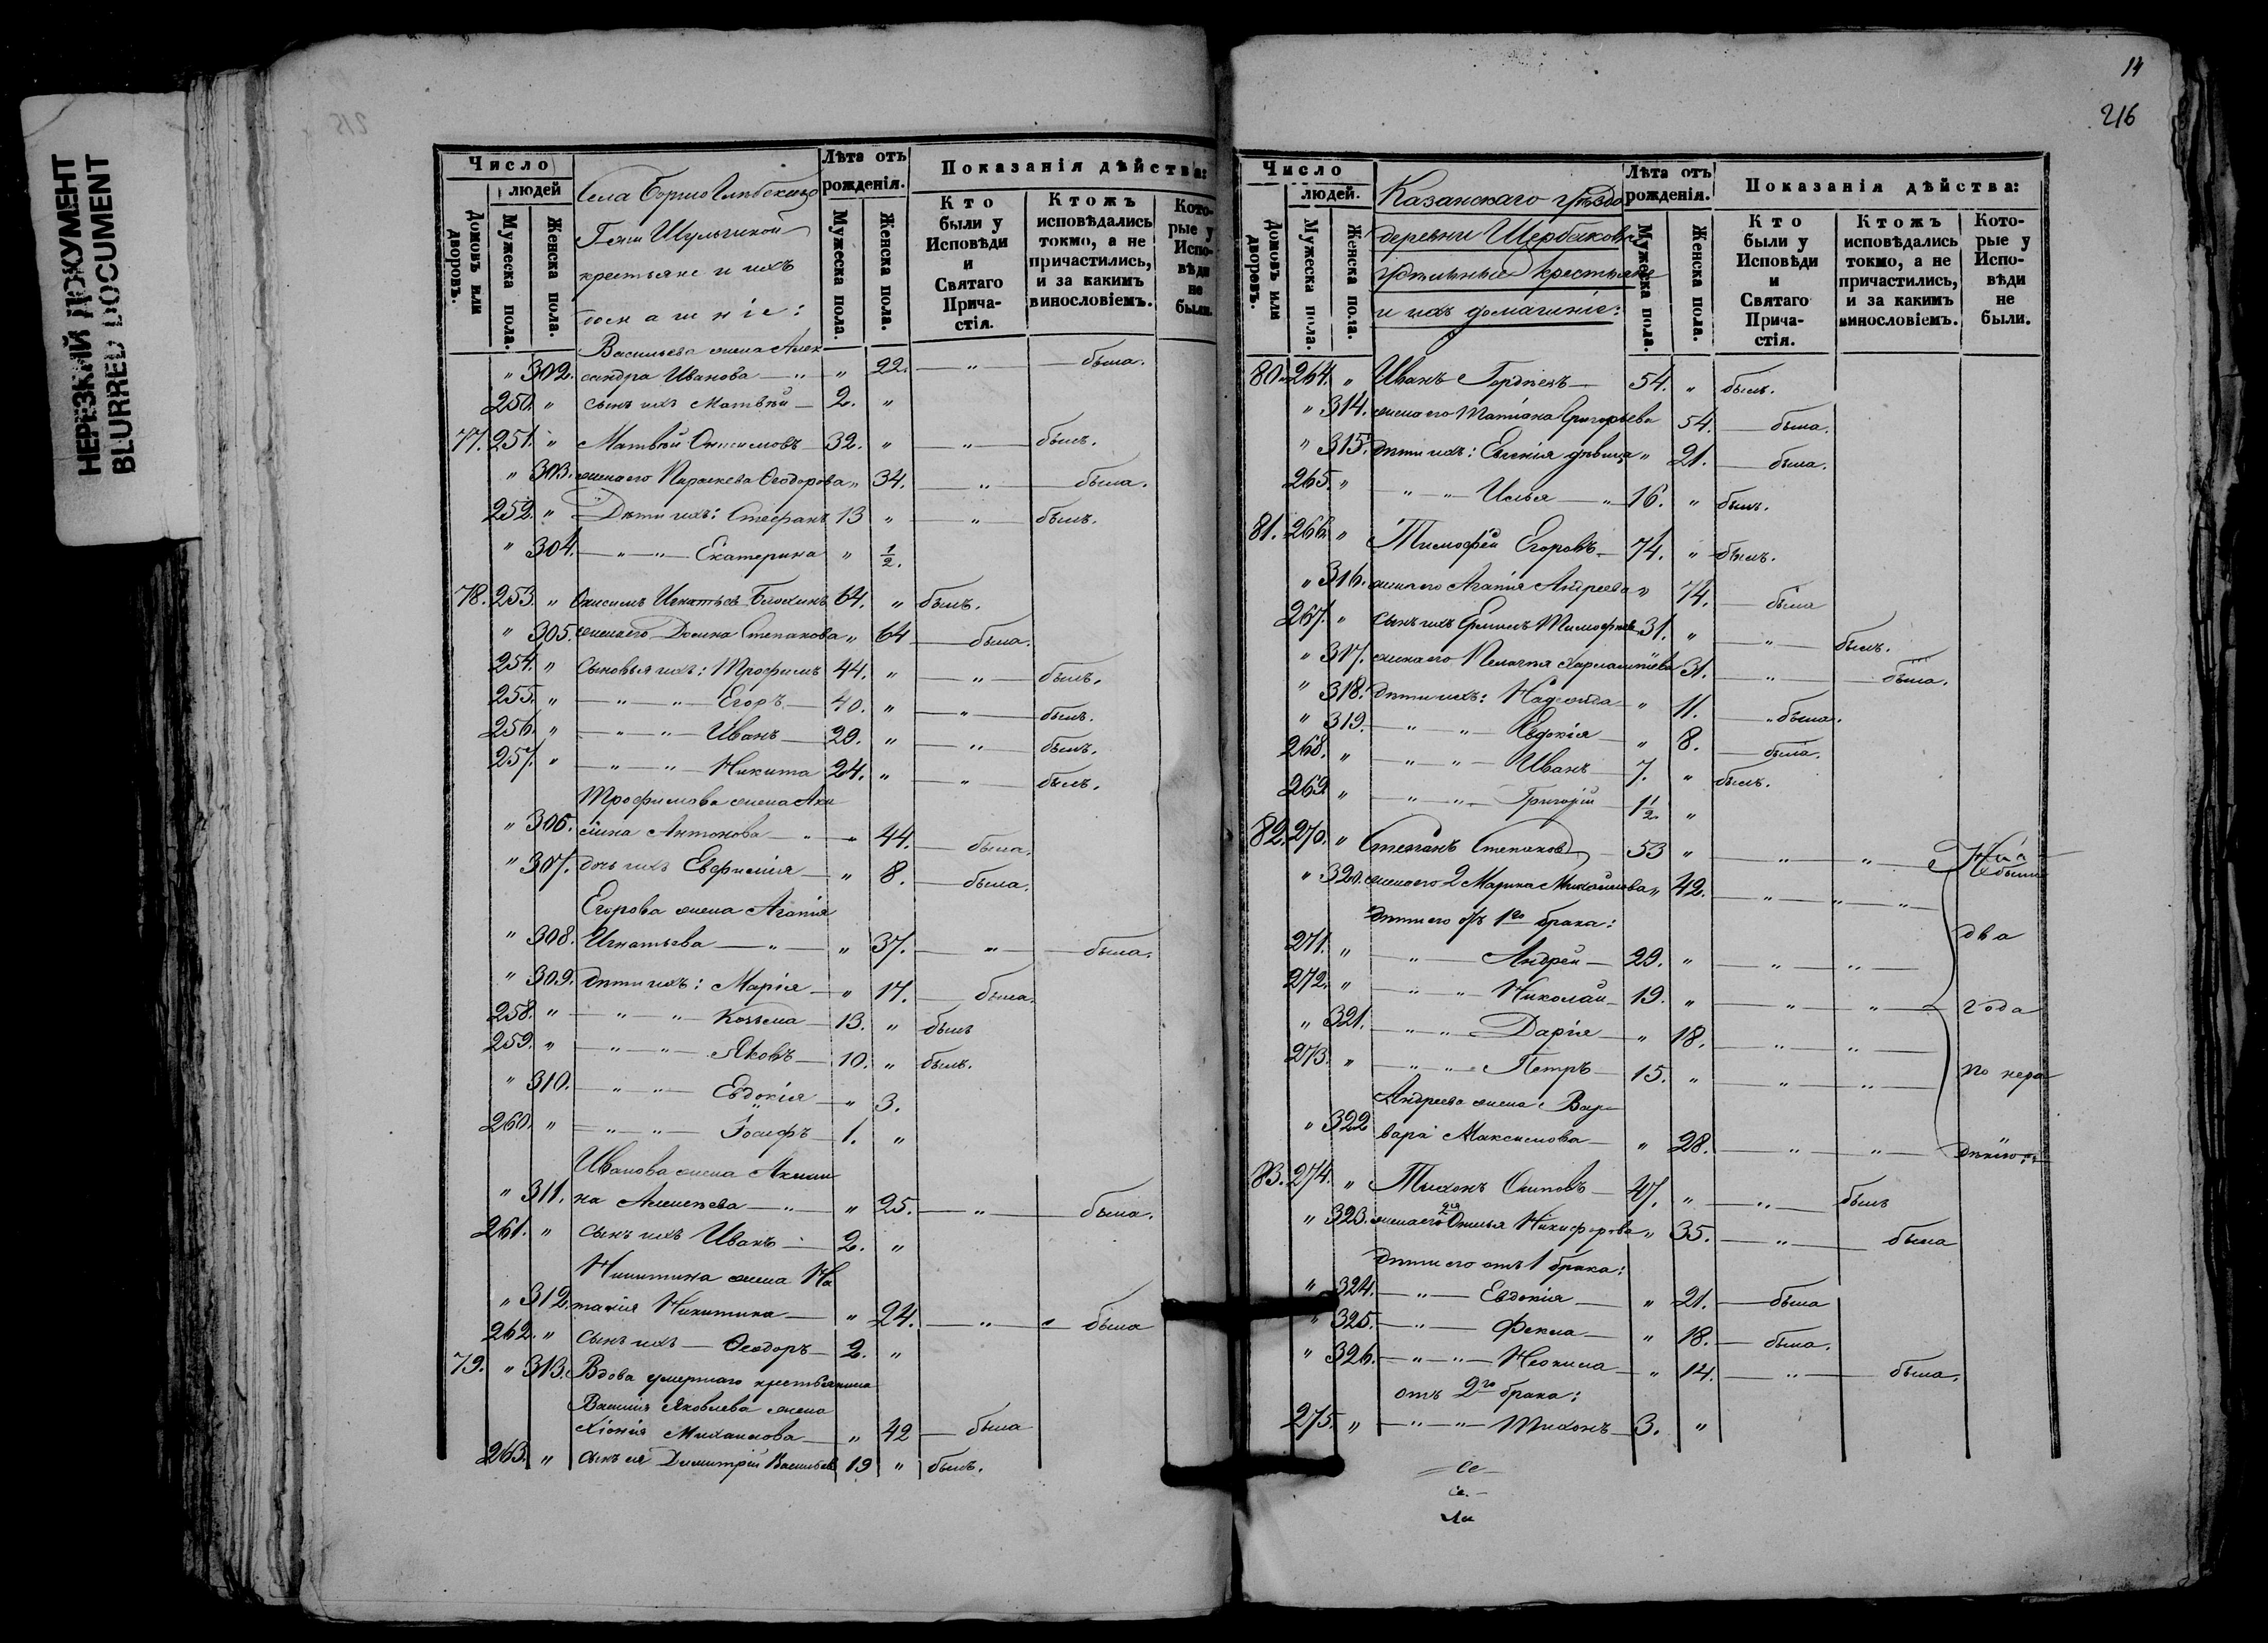 НЕРЕЗКИЙ ДОКУМЕНТ
BLURRED DOCUMENT
215
Число
людей
Домовъ или дворовъ.
Мужеска пола.
Женска пола.
Села Борисоглѣбскаго
Шульгиной
крестьяне и ихъ
домашніе:
Лѣта отъ рожденія.
Мужеска пола.
Женска пола.
Показанія дѣйства:
Кто были у Исповѣди и Святаго Причастія.
Ктожъ исповѣдались токмо, а не причастились, и за какимъ винословіемъ.
Которые у Исповѣди не были.
Васильева жена Алек
" 302. сандра Иванова — " — " 22. — " — была.
250. " сынъ ихъ Матвѣй — 2. "
77. 251. " Матвѣй Онисимовъ 32. " — " — былъ.
" 303. жена его Параскева Ѳеодорова " 34. — " — была.
252. " Дѣти ихъ: Стефанъ 13 " — " — былъ.
" 304. — " — " — Екатерина " 1/2.
78. 253. " Онисимъ Игнатьевъ Блохинъ 64. " былъ.
" 305. жена его Домна Степанова " 64 — была.
254. " Сыновья ихъ: Трофимъ 44. " — " — былъ.
255. " — " — " — Егоръ. — 40. " — " — былъ.
256. " — " — " — Иванъ — 29. " — " — былъ.
257. " — " — " — Никита 24. " — " — былъ.
Трофимова жена Аки
" 306. лина Антонова — " — " 44. — была.
" 307. дочь ихъ Евфимія — " 8. — была.
Егорова жена Агапія
" 308. Игнатьева — " — " 37. — " — была.
" 309. дѣти ихъ: Марія — " 17. — была.
258. " — " — " — Козьма — 13. " былъ
259. " — " — " — Яковъ — 10. " былъ.
" 310. — " — " — Евдокія — " 3.
260. " — " — " — Іосифъ — 1. "
Иванова жена Акили
" 311. на Алексѣева — " — " 25. — " — была.
261. " сынъ ихъ Иванъ — 2. "
Никитина жена На
" 312. талія Никитина — " 24. — " — была
262. " сынъ ихъ — Ѳеодоръ — 2. "
79. " 313. Вдова умершаго крестьянина
Василія Яковлева жена
Хіонія Михаилова — " 42 — была
263. " сынъ ея Димитрій Васильевъ 19 " былъ.
14
216
Число
людей.
Домовъ или дворовъ.
Мужеска пола.
Женска пола.
Казанскаго уѣзда
деревни Щербаковки
удѣльные крестьяне
и ихъ домашніе:
Лѣта отъ рожденія.
Мужеска пола.
Женска пола.
Показанія дѣйства:
Кто были у Исповѣди и Святаго Причастія.
Ктожъ исповѣдались токмо, а не причастились, и за какимъ винословіемъ.
Которые у Исповѣди не были.
80. 264. " Иванъ Гордѣевъ — 54. " былъ.
" 314. жена его Татіана Григорьева 54. — была.
" 315. дѣти ихъ: Евгенія дѣвица " 21. — была.
265. " " — " — Илья — " 16. " былъ.
81. 266. " Тимофей Егоровъ — 74. " былъ.
" 316. жена его Агапія Андреева " 74. — была
267. " сынъ ихъ Ермилъ Тимофѣевъ 31. " — " — былъ.
" 317. жена его Пелагея Харлампіева 31. — " — была.
" 318. дѣти ихъ: Надежда — " 11. — " была.
" 319. — " — " Евдокія — " 8. — была.
268. " — " — " — Иванъ — 7. " былъ.
269. " — " — " — Григорій — 1 1/2. "
82. 270. " Степанъ Степановъ — 53 " — " — " — Не были
" 320. жена его 2 Марина Михайлова " 42. — " — " — "
дѣти его отъ 1го брака:
два
271. " — " — Андрей — 29. " — " — " —
272. " — " — " Николай — 19. " — " — " — года
" 321. — " — " — Дарія — " 18. — " — " —
273. " — " — " — Петръ — 15. " — " — " — по нера
Андреева жена Вар
" 322 вара Максимова — " 28. — " — " — дѣнію.
83. 274. " Тихонъ Осиповъ — 47. " — " — былъ
" 323. жена его 2я Ѳекла Никифорова " 35. — " — была
дѣти его отъ 1 брака:
" 324. — " — Евдокія — " 21. — была
" 325. — " — Фекла — " 18. — была.
" 326. — " — " — Неонила — " 14. — " — была.
отъ 2го брака:
275. " — " — " — Тихонъ — 3. "